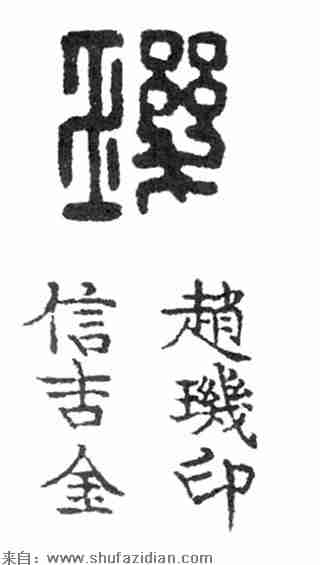 璣
趙璣印
信吉金
来自：www.shufazidian.com